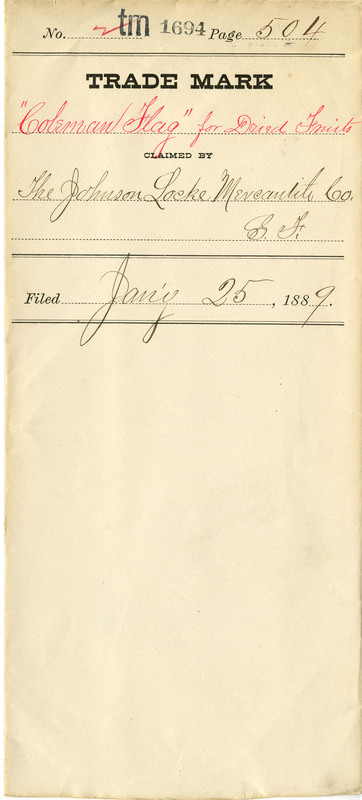 No. tm 1694 Page 504
TRADE MARK
"Coleman Flag" for Dried Fruits
CLAIMED BY
The Johnson Locke Mercantile Co.
S. F.
Filed Jan'y 25, 1889.